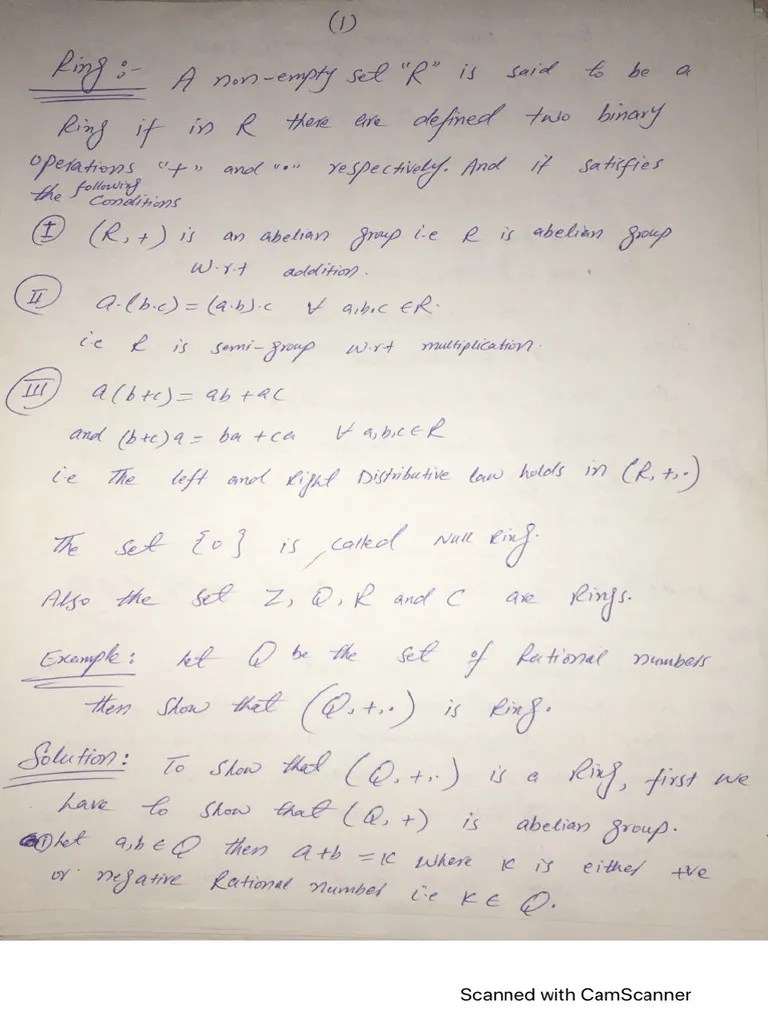 (1)
Ring :- A non-empty set "R" is said to be a
Ring if in R there are defined two binary
operations "+" and "•" respectively. And it satisfies
the following Conditions
(I) (R, +) is an abelian group i.e R is abelian group
w.r.t addition.
(II) a.(b.c) = (a.b).c ∀ a,b,c ∈ R.
i.e R is semi-group w.r.t multiplication.
(III) a(b+c) = ab + ac
and (b+c)a = ba + ca ∀ a,b,c ∈ R
i.e The left and Right Distributive law holds in (R, +, ·)
The set {0} is called Null Ring.
Also the set Z, Q, R and C are Rings.
Example: Let Q be the set of Rational numbers
then show that (Q, +, ·) is Ring.
Solution: To show that (Q, +, ·) is a Ring, first we
have to show that (Q, +) is abelian group.
(i) Let a,b ∈ Q then a+b = K where K is either +ve
or negative Rational number i.e K ∈ Q.
Scanned with CamScanner